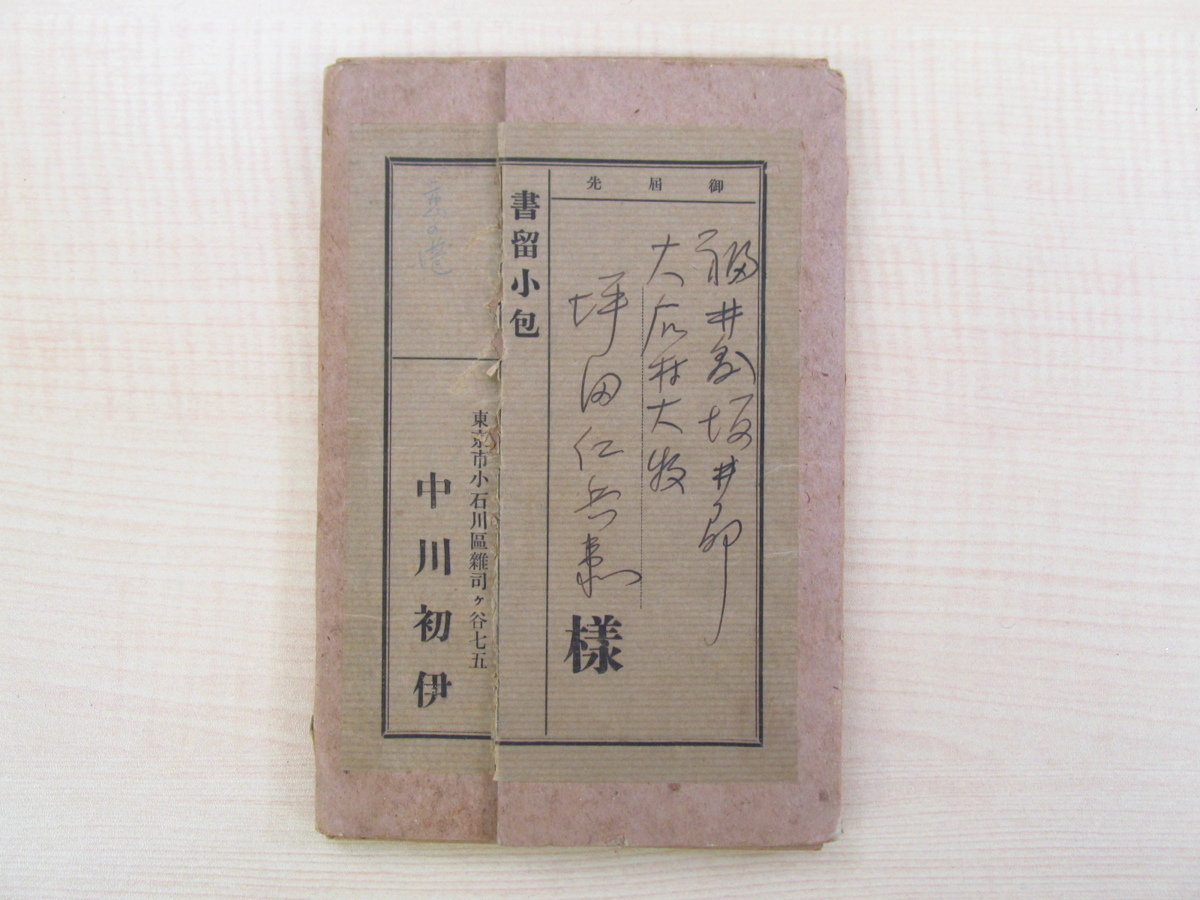 御届先
福井縣坂井郡
大石村大牧
坪田仁兵衛
様
書留小包
東京市小石川區雜司ヶ谷七五
中川初伊